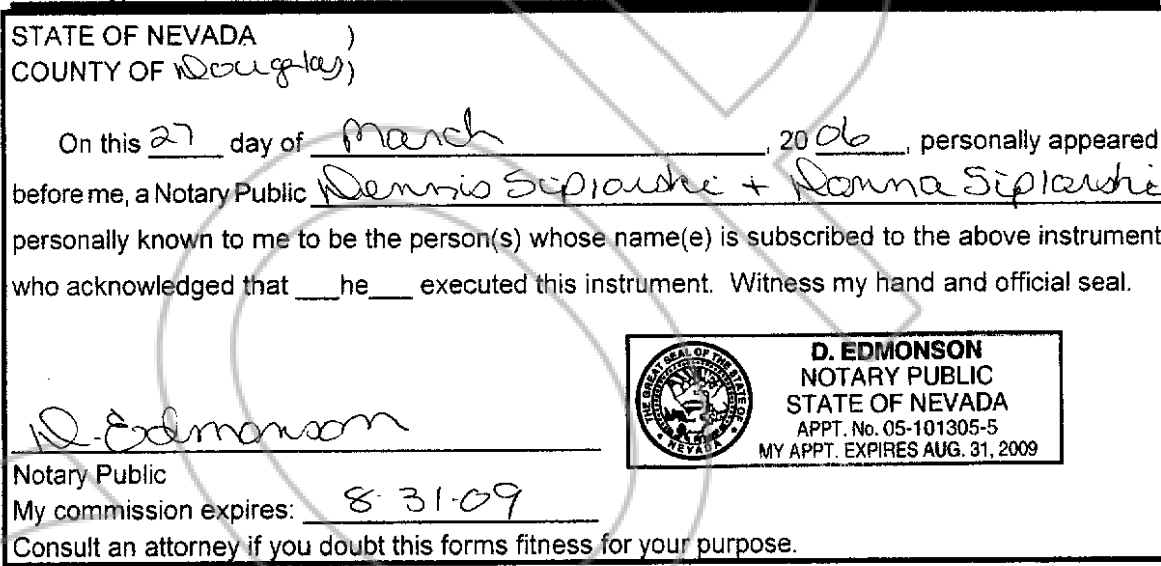 STATE OF NEVADA )
COUNTY OF Douglas )
On this 27 day of March, 20 06, personally appeared
before me, a Notary Public Dennis Siplarski + Donna Siplarski
personally known to me to be the person(s) whose name(e) is subscribed to the above instrument
who acknowledged that ___he___ executed this instrument. Witness my hand and official seal.
D. EDMONSON
NOTARY PUBLIC
STATE OF NEVADA
APPT. No. 05-101305-5
MY APPT. EXPIRES AUG. 31, 2009
THE GREAT SEAL OF THE STATE OF NEVADA
D. Edmonson
Notary Public
My commission expires: 8-31-09
Consult an attorney if you doubt this forms fitness for your purpose.